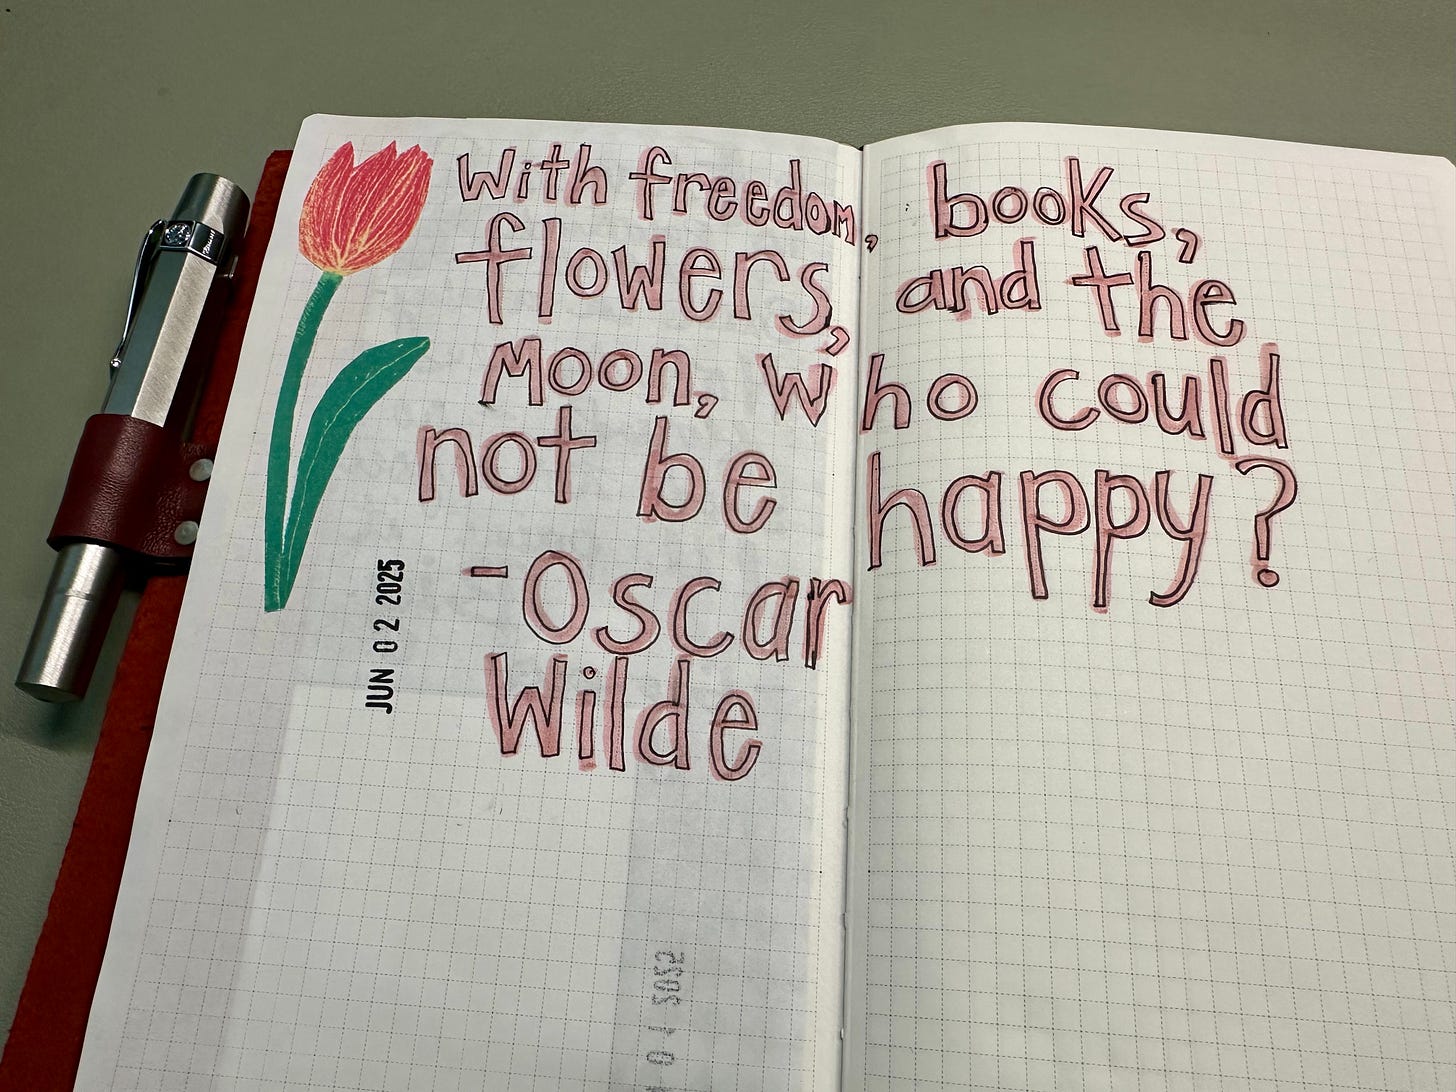 With freedom, books,
flowers, and the
Moon, who could
not be happy?
-Oscar
Wilde
JUN 02 2025
2025